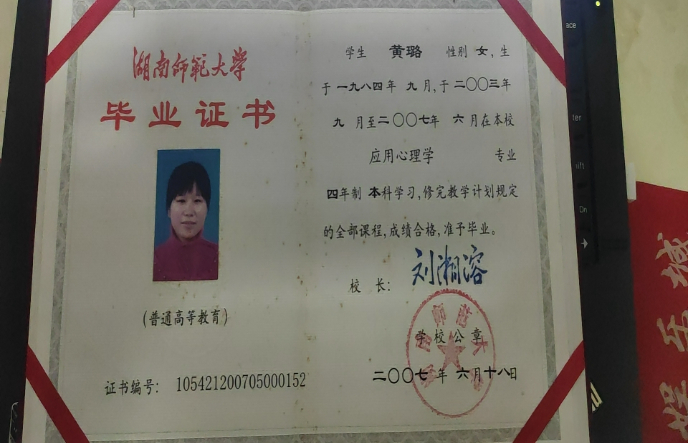 湖南师范大学
毕业证书
(普通高等教育)
证书编号: 105421200705000152
学生 黄璐 性别 女, 生
于 一九八四年 九 月, 于 二〇〇三年
九 月至二〇〇七年 六 月在本校
应用心理学 专业
四年制 本科学习, 修完教学计划规定
的全部课程, 成绩合格, 准予毕业。
校 长: 刘湘溶
学校公章
二〇〇七年 六月十八日